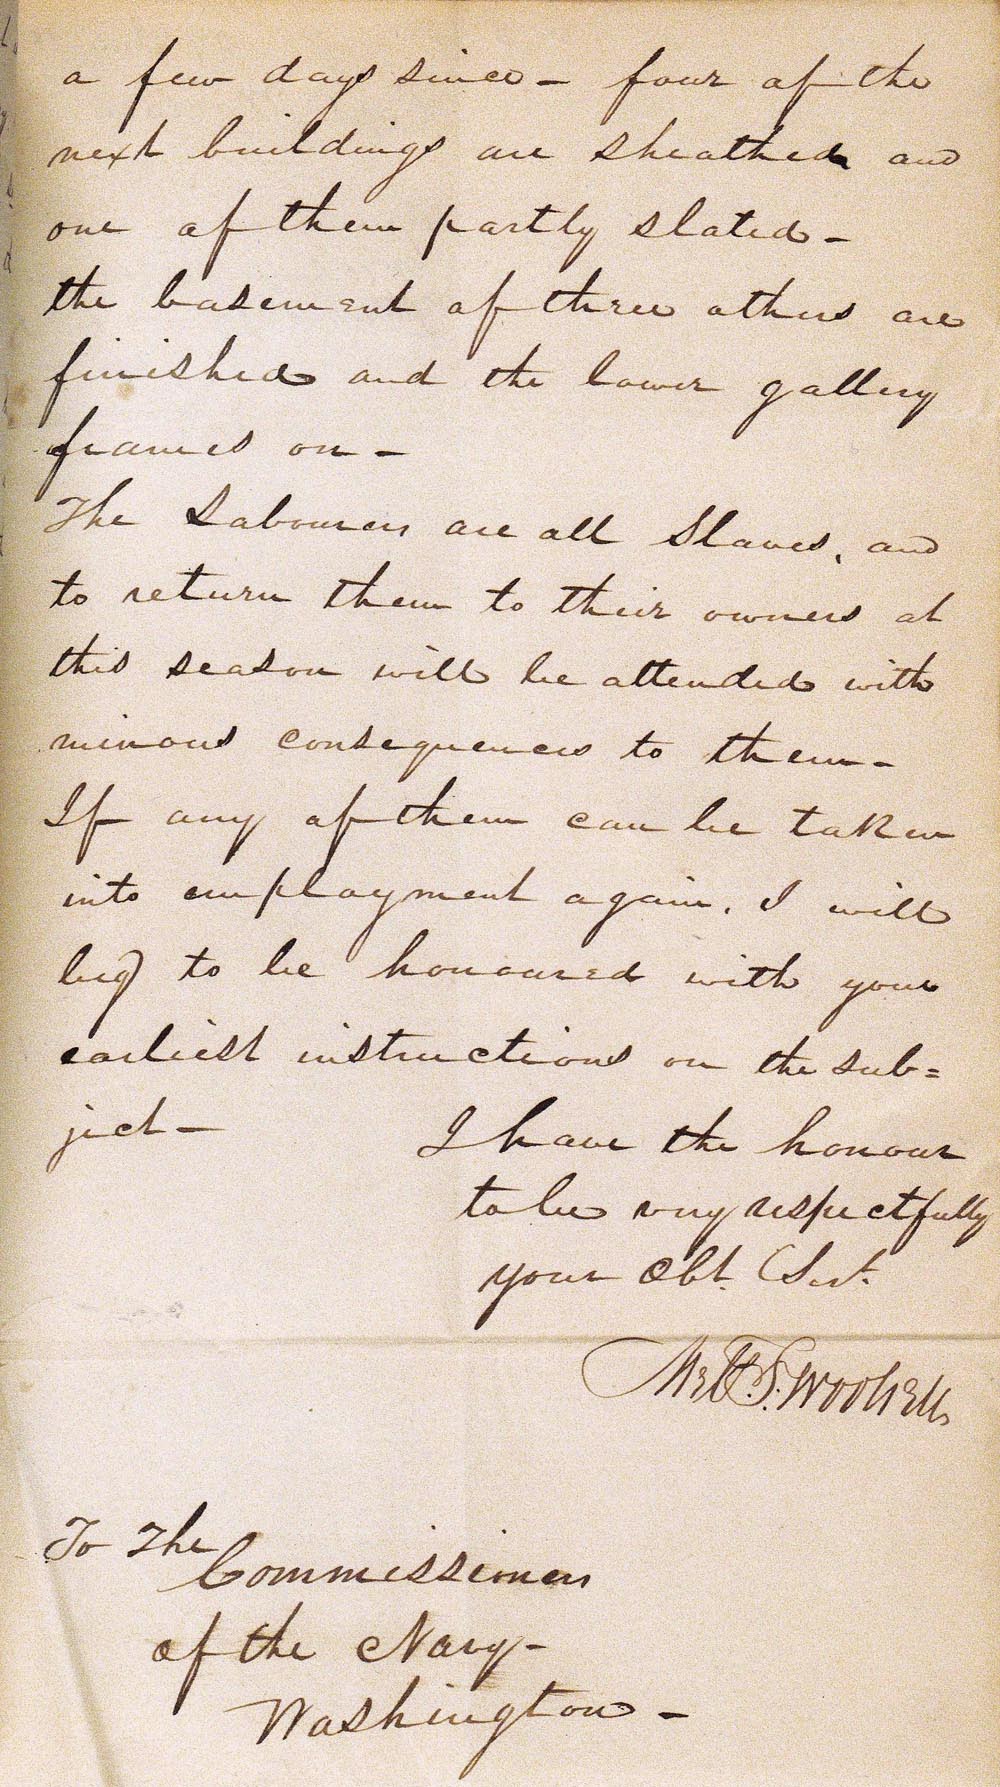 a few days since – four of the
next buildings are sheathed and
one of them partly slated –
the basement of three others are
finished and the lower gallery
frames on –
The Labourers are all Slaves, and
to return them to their owners at
this season will be attended with
ruinous consequences to them –
If any of them can be taken
into employment again, I will
beg to be honoured with your
earliest instructions on the sub=
ject –
I have the honour
to be very respectfully
your Obt. Servt.
Melt. T. Woolsey
To The
Commissioners
of the Navy –
Washington –